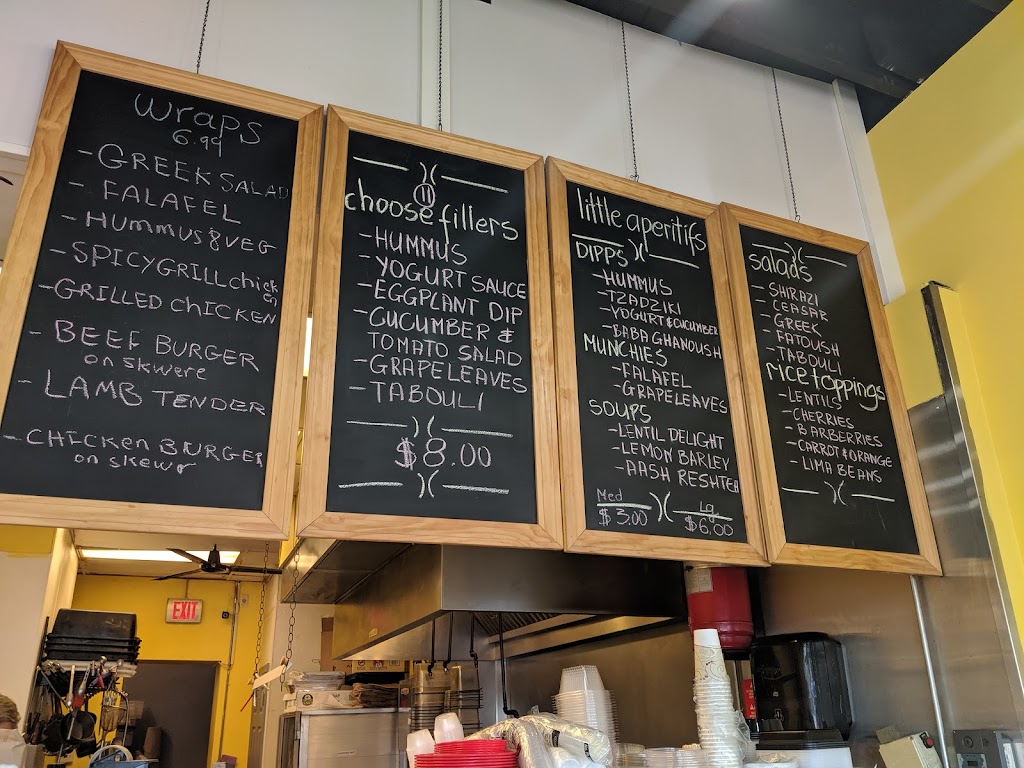 wraps
6.99
-GREEK SALAD
- FALAFEL
- HUMMUS & VEG
-SPICY GRILL chick
en
-GRILLED CHICKEN
- BEEF BURGER
on skwere
- LAMB TENDER
- CHICKEN BURGER
on skewr
choose fillers
-HUMMUS
-YOGURT SAUCE
-EGGPLANT DIP
-CUCUMBER &
TOMATO SALAD
-GRAPELEAVES
-TABOULI
$8.00
little aperitifs
DIPPS
-HUMMUS
-TZADZIKI
-YOGURT & CUCUMBER
-BABAGHANOUSH
MUNCHIES
-FALAFEL
-GRAPELEAVES
SOUPS
-LENTIL DELIGHT
-LEMON BARLEY
-AASH RESHTEH
Med Lg
$3.00 $6.00
salads
-SHIRAZI
-CEASAR
-GREEK
-FATOUSH
-TABOULI
rice toppings
-LENTILS
-CHERRIES
-BARBERRIES
-CARROT & ORANGE
-LIMA BEANS
EXIT